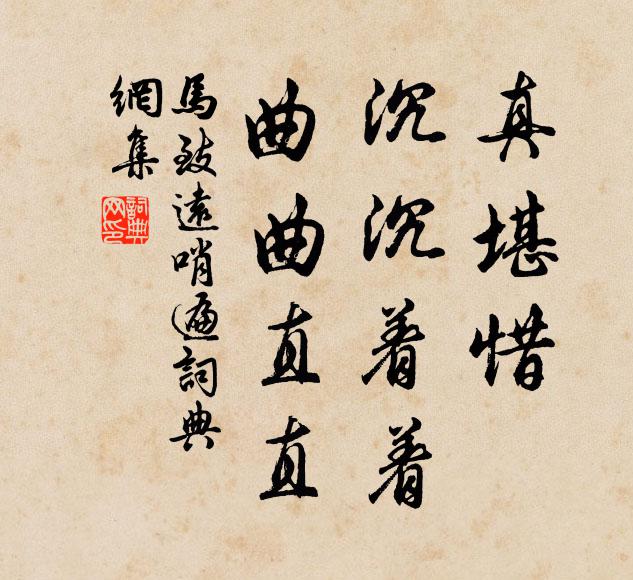 真堪惜
沉沉着着
曲曲直直
馬致遠哨遍詞典
網集
詞典
网印